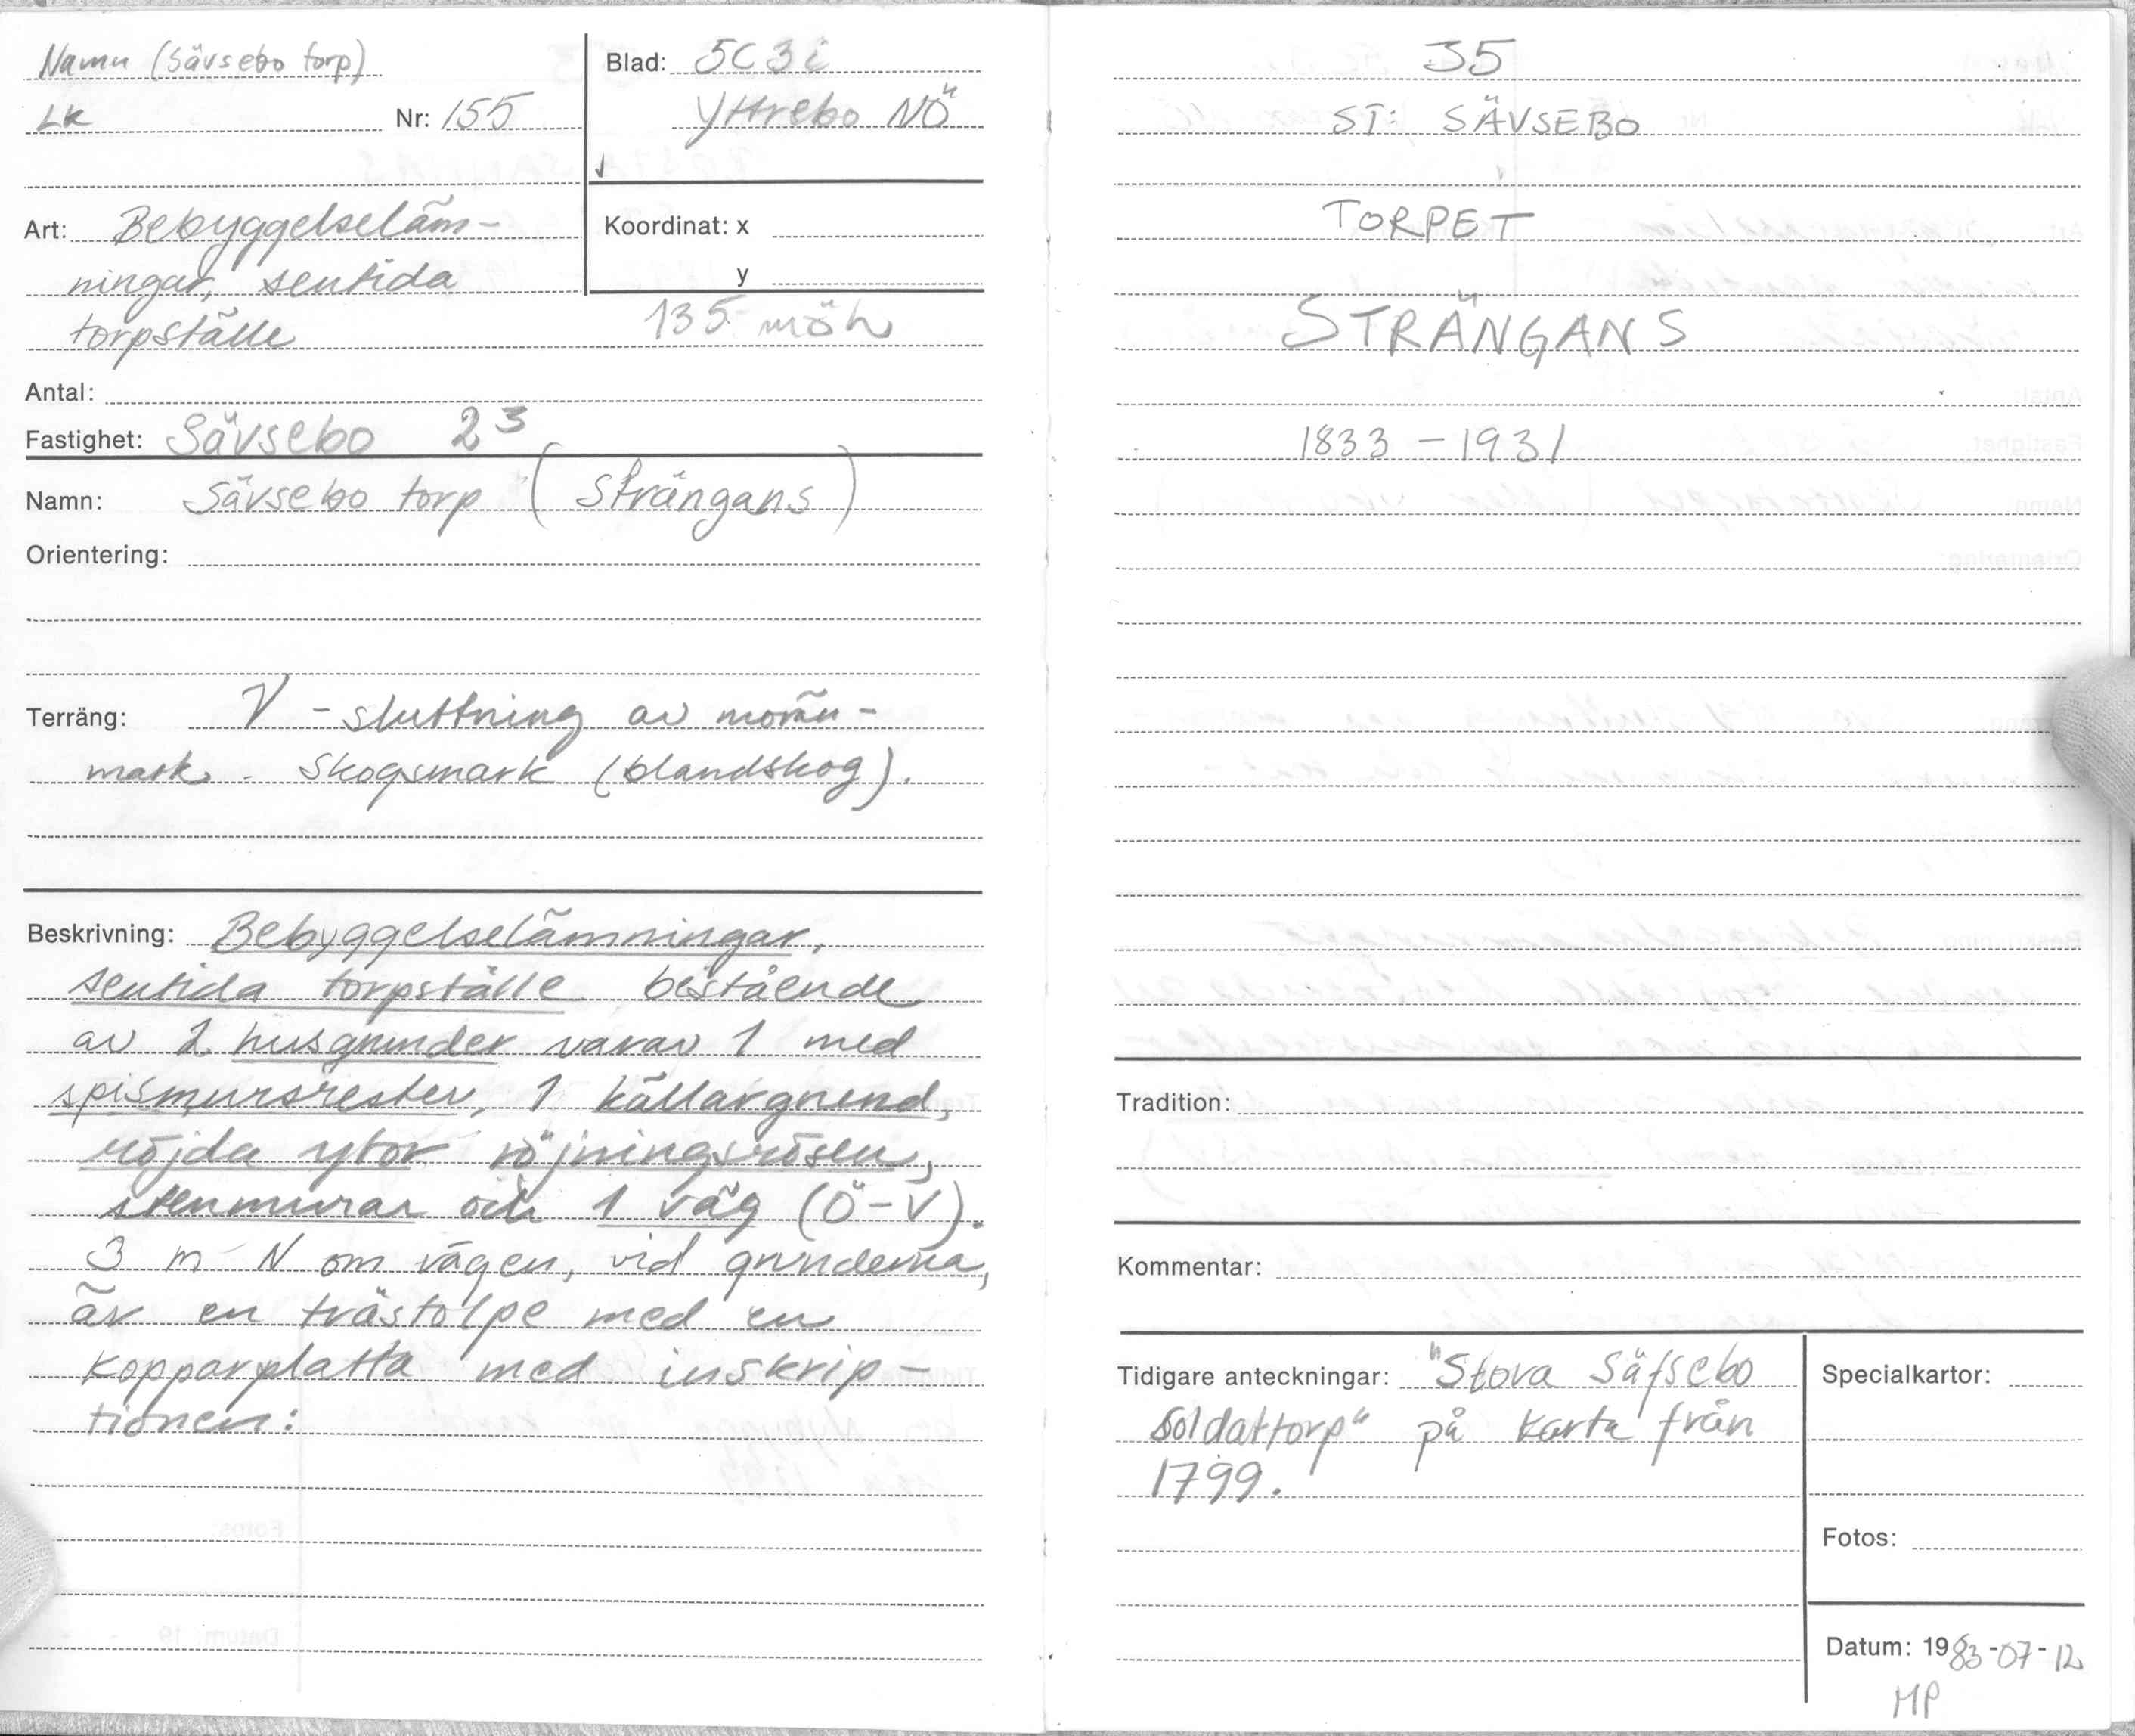 Namn (Sävsebo torp)
LK Nr: 155
Blad: 5C3i
Yttrebo NÖ
Art: Bebyggelseläm-
ningar, sentida
torpställe
Koordinat: x
y
135 möh
Antal:
Fastighet: Sävsebo 2³
Namn: Sävsebo torp (Strängans)
Orientering:
Terräng: V - sluttning av morän-
mark. Skogsmark (blandskog).
Beskrivning: Bebyggelselämningar,
sentida torpställe bestående
av 2 husgrunder varav 1 med
spismursrester, 1 källargrund,
röjda ytor röjningsrösen,
stenmurar och 1 väg (Ö-V).
3 m N om vägen, vid grunderna,
är en trästolpe med en
kopparplatta med inskrip-
tionen:
35
ST: SÄVSEBO
TORPET
STRÄNGANS
1833 - 1931
Tradition:
Kommentar:
Tidigare anteckningar: "Stora Säfsebo
Soldattorp" på karta från
1799.
Specialkartor:
Fotos:
Datum: 1983-07-12
MP